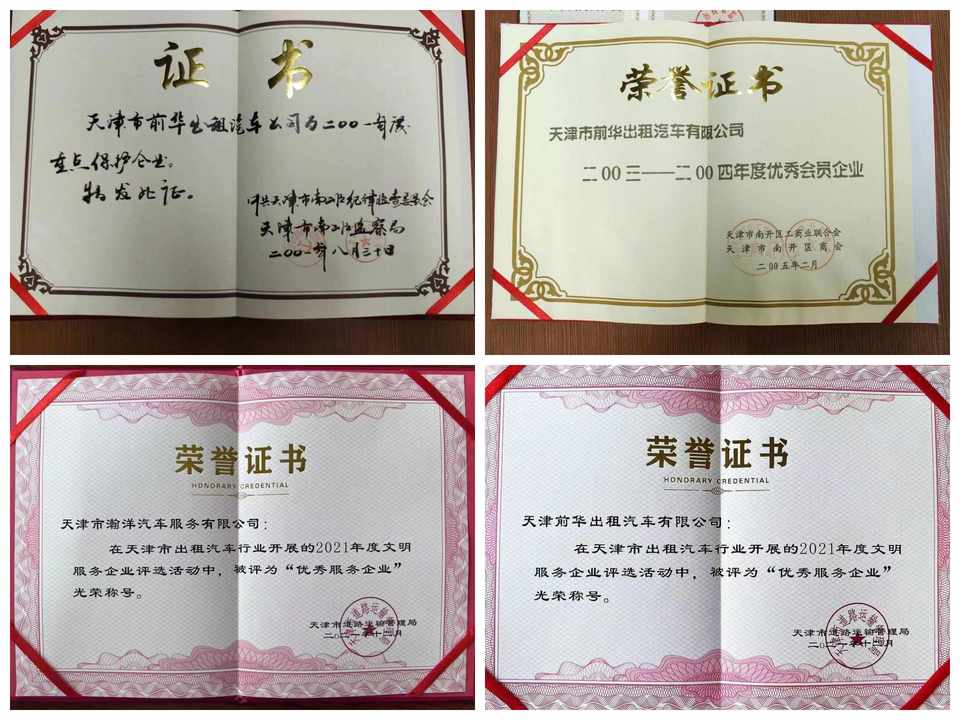 证 书
天津市前华出租汽车公司为二00一年度
重点保护企业。
特发此证。
中共天津市南开区纪律检查委员会
天津市南开区监察局
二00一年八月三十日
荣誉证书
天津市前华出租汽车有限公司
二00三——二00四年度优秀会员企业
天津市南开区工商业联合会
天津市南开区商会
二00五年二月
荣誉证书
HONORARY CREDENTIAL
天津市瀚洋汽车服务有限公司：
在天津市出租汽车行业开展的2021年度文明
服务企业评选活动中，被评为“优秀服务企业”
光荣称号。
天津市道路运输管理局
二〇二一年十二月
荣誉证书
HONORARY CREDENTIAL
天津前华出租汽车有限公司：
在天津市出租汽车行业开展的2021年度文明
服务企业评选活动中，被评为“优秀服务企业”
光荣称号。
天津市道路运输管理局
二〇二一年十二月